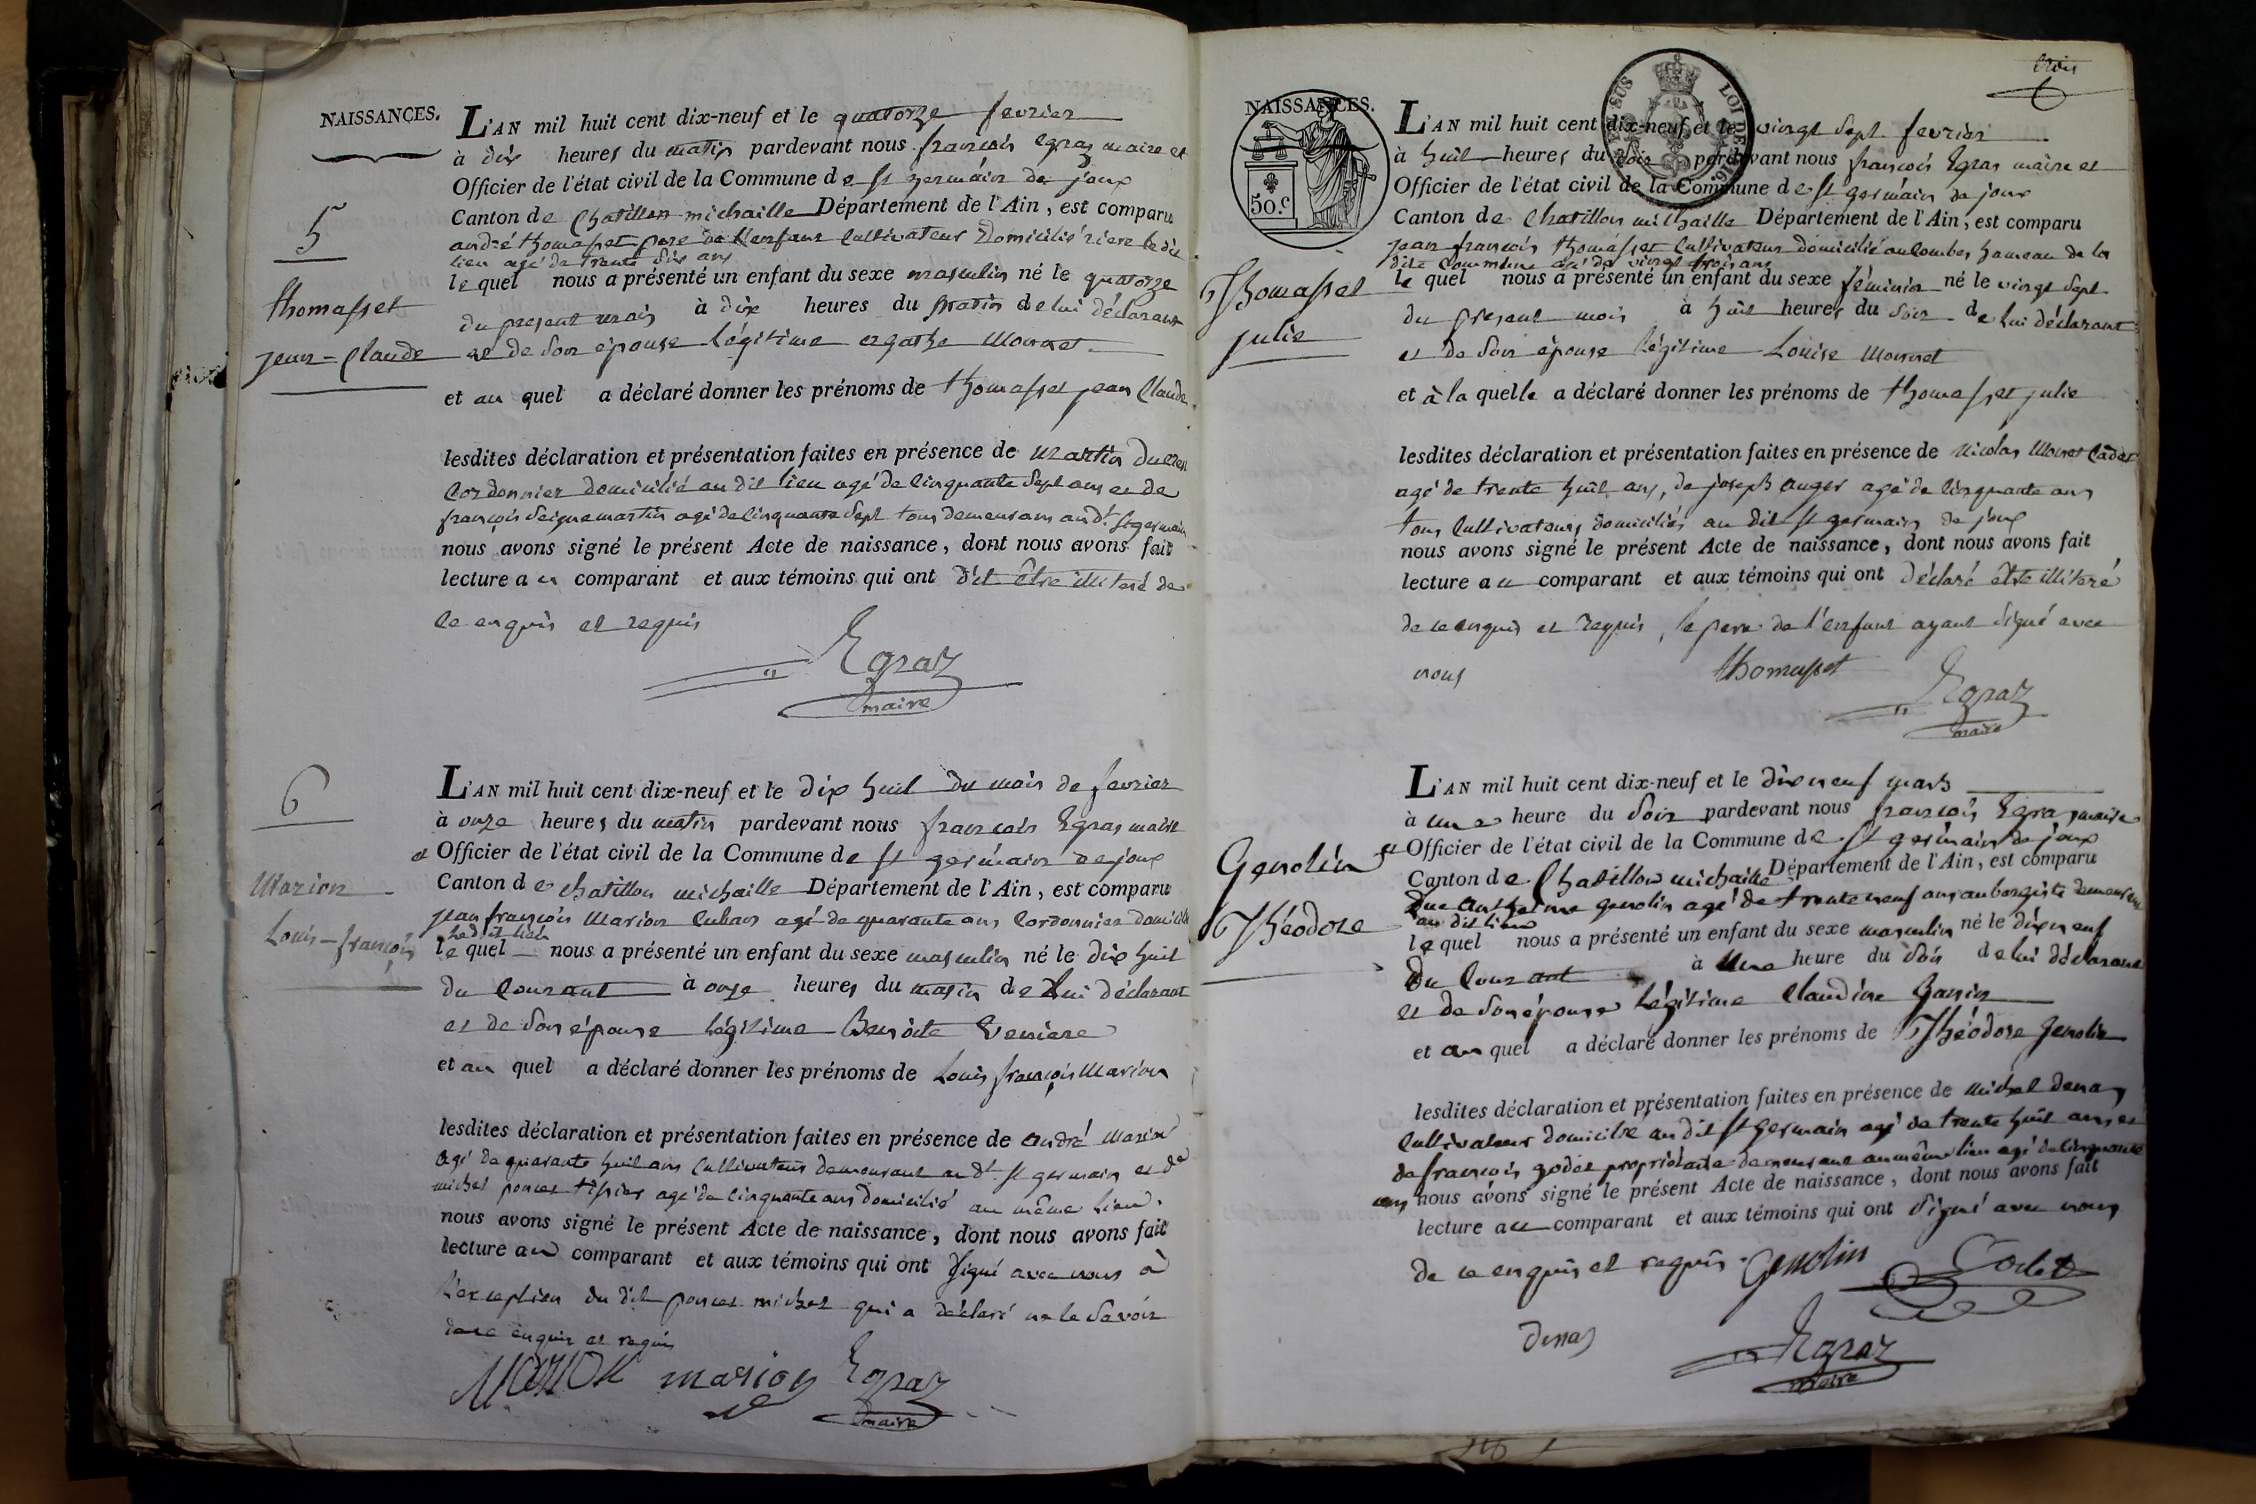 NAISSANCES.
5
thomasset
jean=Claude
L'AN mil huit cent dix-neuf et le quatorze fevrier
à dix heures du matin pardevant nous françois Egraz maire et
Officier de l'état civil de la Commune de st germain de joux
Canton de Chatillon michaille Département de l'Ain, est comparu
andré thomasset pere de l'enfant Cultivateur Domicilié riere le dit
lieu agé de trente six ans
lequel nous a présenté un enfant du sexe masculin né le quatorze
du present mois à dix heures du matin de lui déclarant
et de son épouse légitime Monnet
et au quel a déclaré donner les prénoms de thomasset jean Claude
lesdites déclaration et présentation faites en présence de martin
Cordonnier domicilié au dit lieu agé de Cinquante Sept ans et de
françois Seignemartin agé de Cinquante Sept tous demeurans au dt. st germain
nous avons signé le présent Acte de naissance, dont nous avons fait
lecture au comparant et aux témoins qui ont dit être illiteré de
ce enquis et requis
Egraz
maire
6
Marion
Louis-françois
L'AN mil huit cent dix-neuf et le dix huit du mois de fevrier
à onze heures du matin pardevant nous françois Egraz maire
et Officier de l'état civil de la Commune de st germain de joux
Canton de chatillon michaille Département de l'Ain, est comparu
jean françois Marion agé de quarante ans Cordonnier domicilié
audit lieu
lequel nous a présenté un enfant du sexe masculin né le dix huit
du Courant à onze heures du matin de Lui déclarant
et de son épouse légitime Benoite
et au quel a déclaré donner les prénoms de Louis françois Marion
lesdites déclaration et présentation faites en présence de andré Marion
agé de quarante huit ans Cultivateur demeurant au dt. st germain et de
michel poncet agé de Cinquante ans domicilié au même lieu.
nous avons signé le présent Acte de naissance, dont nous avons fait
lecture au comparant et aux témoins qui ont signé avec nous à
l'exception du dit poncet michel qui a déclaré ne le savoir
de ce enquis et requis
Marion marion Egraz
maire
trois
NAISSANCES.
50.c
LOI DE 1816.
Thomasset
julie
L'AN mil huit cent dix-neuf et le vingt sept fevrier
à huit heures du soir pardevant nous françois Egraz maire et
Officier de l'état civil de la Commune de st germain de joux
Canton de Chatillon michaille Département de l'Ain, est comparu
jean françois thomasset Cultivateur domicilié au Combes hameau de la
dite Commune agé de vingt trois ans
lequel nous a présenté un enfant du sexe féminin né le vingt sept
du present mois à huit heures du soir de lui déclarant
et de son épouse légitime Louise Monnet
et à la quelle a déclaré donner les prénoms de thomasset julie
lesdites déclaration et présentation faites en présence de Nicolas Monet Cadet
agé de trente huit ans, de joseph auger agé de Cinquante ans
tous Cultivateurs domiciliés au dit st germain de joux
nous avons signé le présent Acte de naissance, dont nous avons fait
lecture au comparant et aux témoins qui ont déclaré être illiteré
de ce enquis et requis, le pere de l'enfant ayant signé avec
nous
thomasset
Egraz
maire
Genolin
Théodore
L'AN mil huit cent dix-neuf et le dix neuf mars
à une heure du soir pardevant nous françois Egraz maire
et Officier de l'état civil de la Commune de st germain de joux
Canton de Chatillon michaille Département de l'Ain, est comparu
anthelme genolin agé de trente neuf ans aubergiste demeurant
au dit lieu
lequel nous a présenté un enfant du sexe masculin né le dix neuf
du Courant à une heure du soir de lui déclarant
et de son épouse légitime Claudine
et au quel a déclaré donner les prénoms de Théodore genolin
lesdites déclaration et présentation faites en présence de michel
Cultivateur domicilié au dit st germain agé de trente huit ans et
de françois godet propriétaire demeurant au même lieu agé de Cinquante
ans nous avons signé le présent Acte de naissance, dont nous avons fait
lecture au comparant et aux témoins qui ont signé avec nous
de ce enquis et requis. Genolin Godet
Egraz
maire